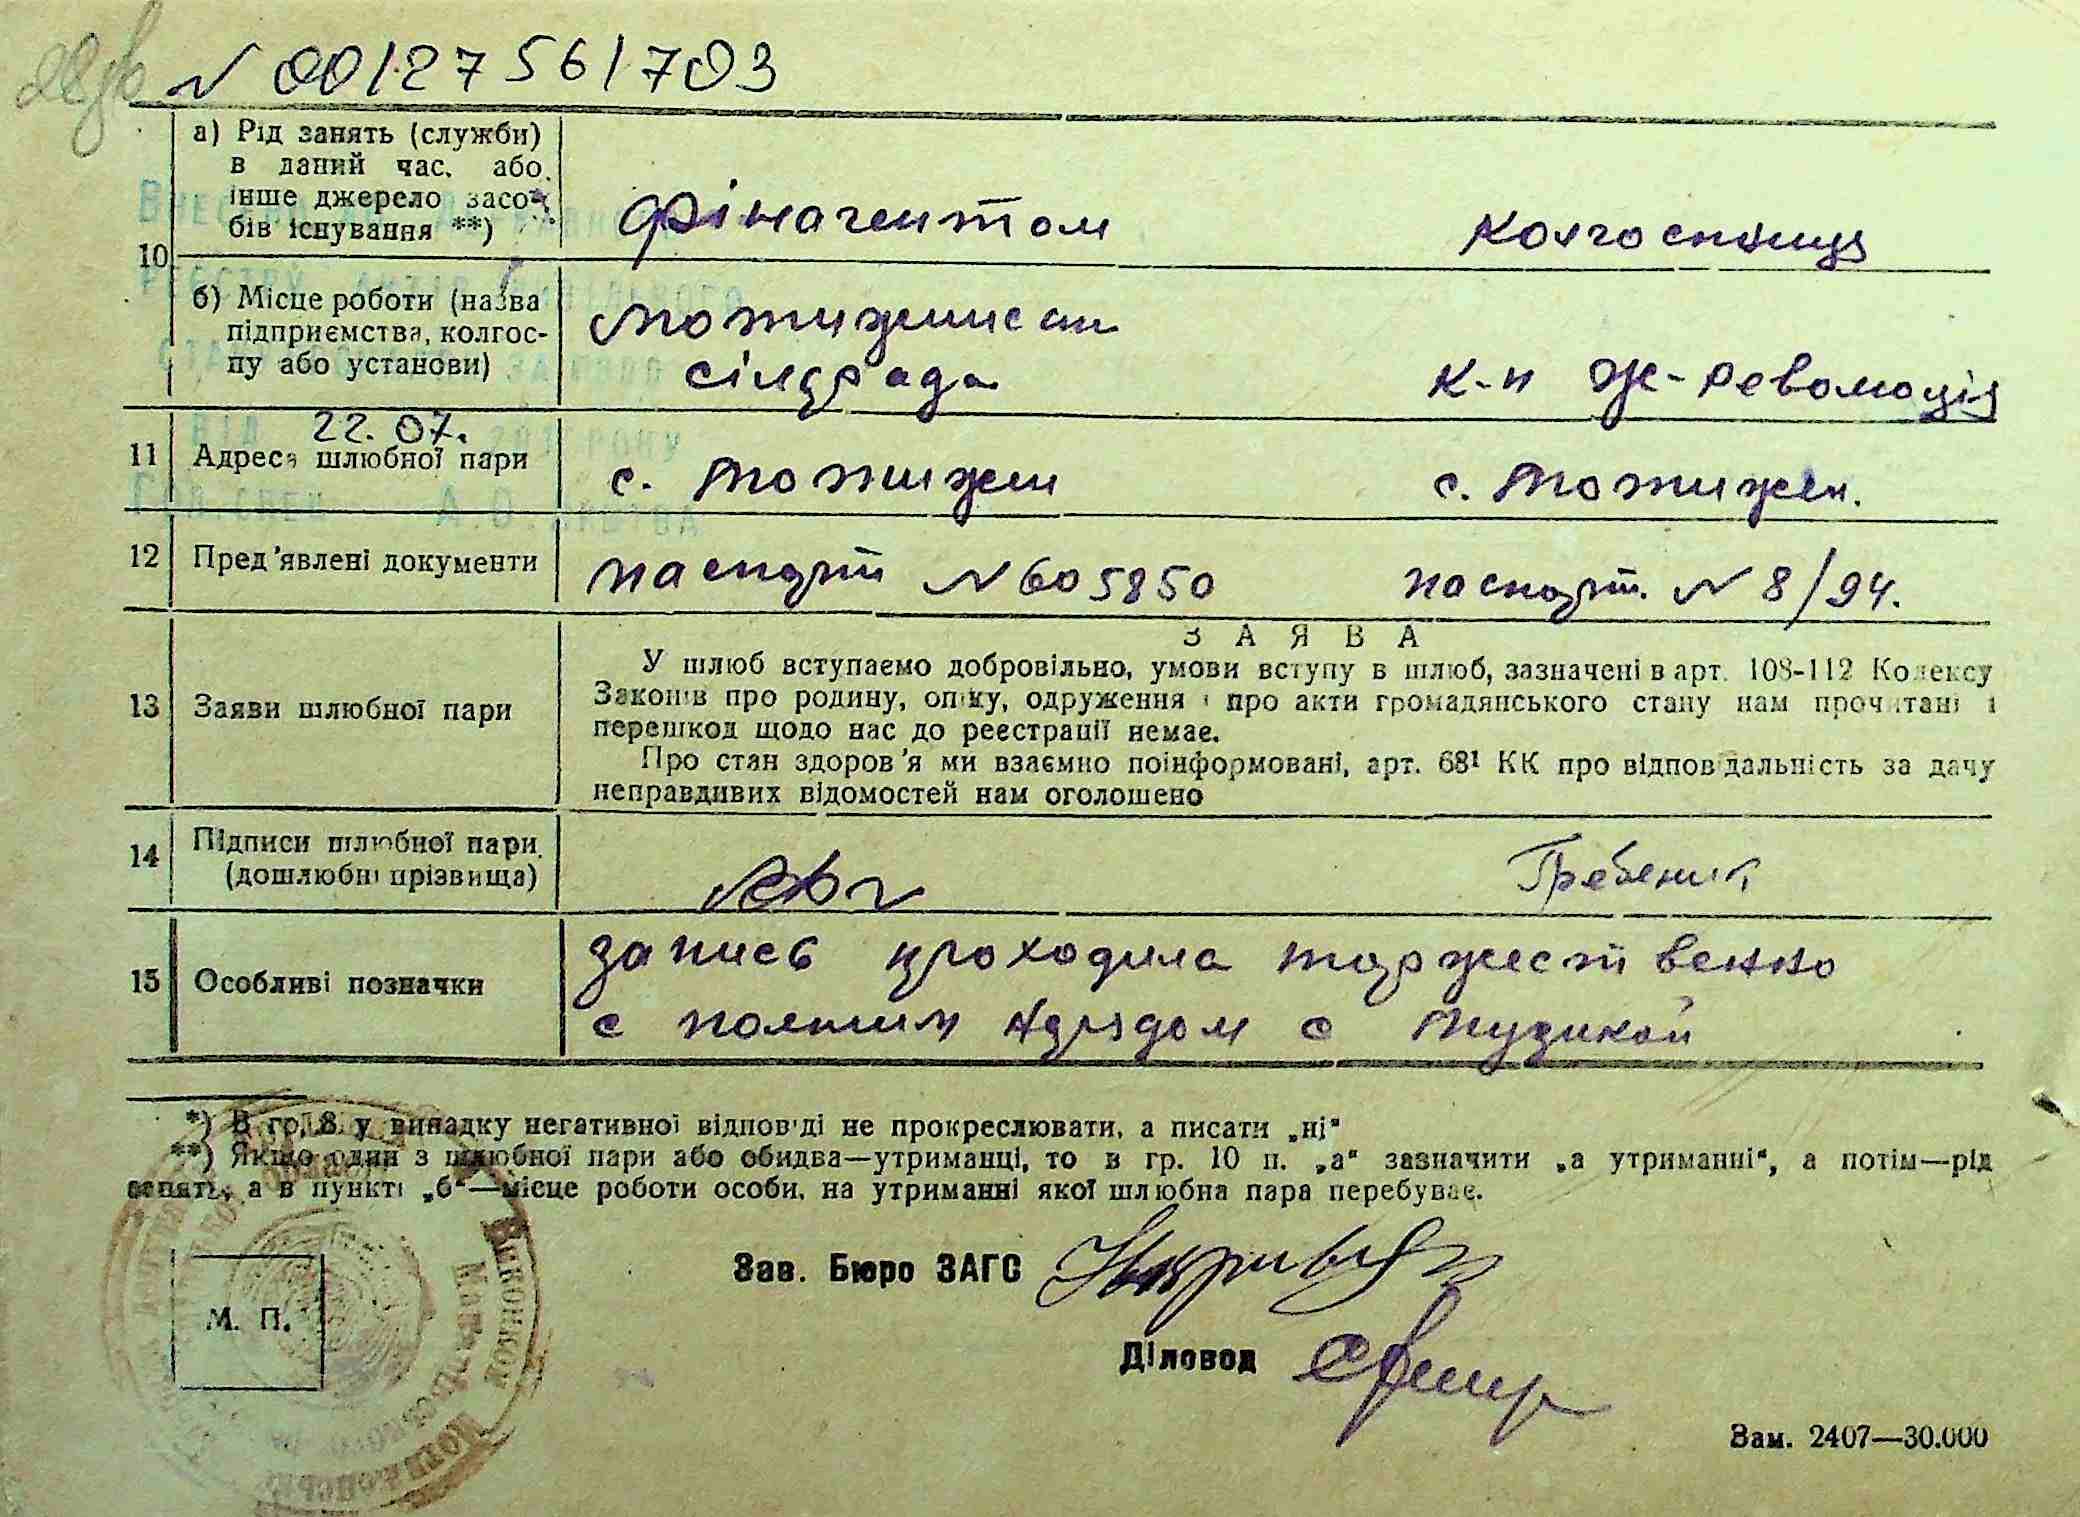 N 00127561703
10
а) Рід занять (служби)
в даний час, або
інше джерело засо-
бів існування **)
фінагентом
колгоспниця
б) Місце роботи (назва
підприємства, колгос-
пу або установи)
сільрада
к-п Ж-Революція
22.07.
11 Адреса шлюбної пари
с. Мотижин
с. Мотижин.
12 Пред'явлені документи
паспорт N 605850
паспорт. N 8/94.
13 Заяви шлюбної пари
ЗАЯВА
У шлюб вступаємо добровільно, умови вступу в шлюб, зазначені в арт. 108-112 Кодексу
Законів про родину, опіку, одруження і про акти громадянського стану нам прочитані і
перешкод щодо нас до реєстрації немає.
Про стан здоров'я ми взаємно поінформовані, арт. 68¹ КК про відповідальність за дачу
неправдивих відомостей нам оголошено
14 Підписи шлюбної пари
(дошлюбні прізвища)
Гребеник
15 Особливі позначки
запись проходила торжественно
с полним обрядом с музикой
*) В гр. 8 у випадку негативної відповіді не прокреслювати, а писати „ні“
**) Якщо один з шлюбної пари або обидва—утриманці, то в гр. 10 п. „а“ зазначити „а утриманні“, а потім—рід
занять, а в пункті „б“—місце роботи особи, на утриманні якої шлюбна пара перебуває.
Зав. Бюро ЗАГС
М. П.
Діловод
Зам. 2407—30.000